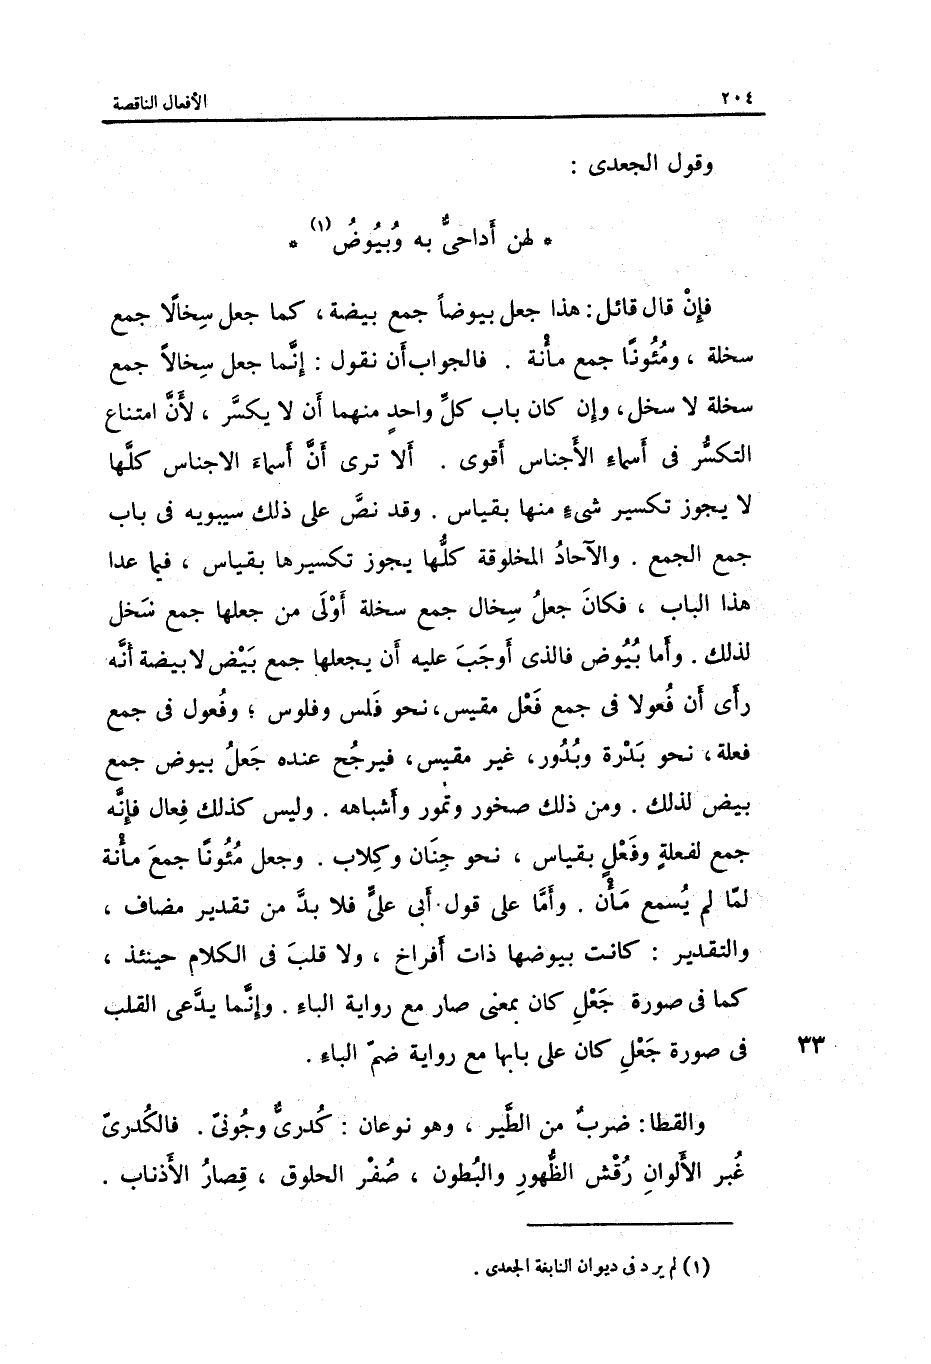 ٢٠٤ الأفعال الناقصة
وقول الجعدى :
* لهن أَداحىٌّ به وبُيُوضُ (١) *
فإنْ قال قائل : هذا جعل بيوضاً جمع بيضة ، كما جعل سِخالًا جمع
سخلة ، ومُئُونًا جمع مأْنة . فالجواب أن نقول : إنَّما جعل سِخالاً جمع
سخلة لا سخل ، وإن كان باب كلِّ واحدٍ منهما أن لا يكسَّر ، لأنَّ امتناع
التكسُّر فى أَسماءِ الأَجناس أَقوى . أَلا ترى أَنَّ أَسماءَ الاجناس كلَّها
لا يجوز تكسير شىءٍ منها بقياس . وقد نصَّ على ذلك سيبويه فى باب
جمع الجمع . والآحادُ المخلوقة كلُّها يجوز تكسيرها بقياس ، فيما عدا
هذا الباب ، فكانَ جعلُ سِخال جمع سخلة أَوْلَى من جعلها جمع سَخل
لذلك . وأَما بُيُوض فالذى أَوجَبَ عليه أَن يجعلها جمع بَيْض لا بيضة أَنَّه
رأَى أَن فُعولا فى جمع فَعْل مقيس ، نحو فَلس وفلوس ؛ وفُعول فى جمع
فعلة ، نحو بَدْرة وبُدُور ، غير مقيس ، فيرجُح عنده جَعلُ بيوض جمع
بيض لذلك . ومن ذلك صخور وتمُور وأَشباهه . وليس كذلك فِعال فإنَّه
جمع لفعلةٍ وفَعْلٍ بقياس ، نحو جِنَان وكِلاب . وجعل مُئُونًا جمعَ مأْنة
لمّا لم يُسمع مَأْن . وأَمَّا على قول أَبى علىٍّ فلا بدَّ من تقدير مضاف ،
والتقدير : كانت بيوضها ذات أَفراخ ، ولا قلبَ فى الكلام حينئذ ،
كما فى صورة جَعْلِ كان بمعنى صار مع رواية الباء . وإنَّما يدَّعى القلب
فى صورة جَعْلِ كان على بابها مع رواية ضمّ الباء . ٣٣
والقطا : ضربٌ من الطَّير ، وهو نوعان : كُدرىٌّ وجُونىّ . فالكُدرىّ
غُبر الأَلوانِ رُقْش الظُّهورِ والبُطون ، صُفْر الحلوق ، قِصارُ الأَذناب .
(١) لم يرد فى ديوان النابغة الجعدى .